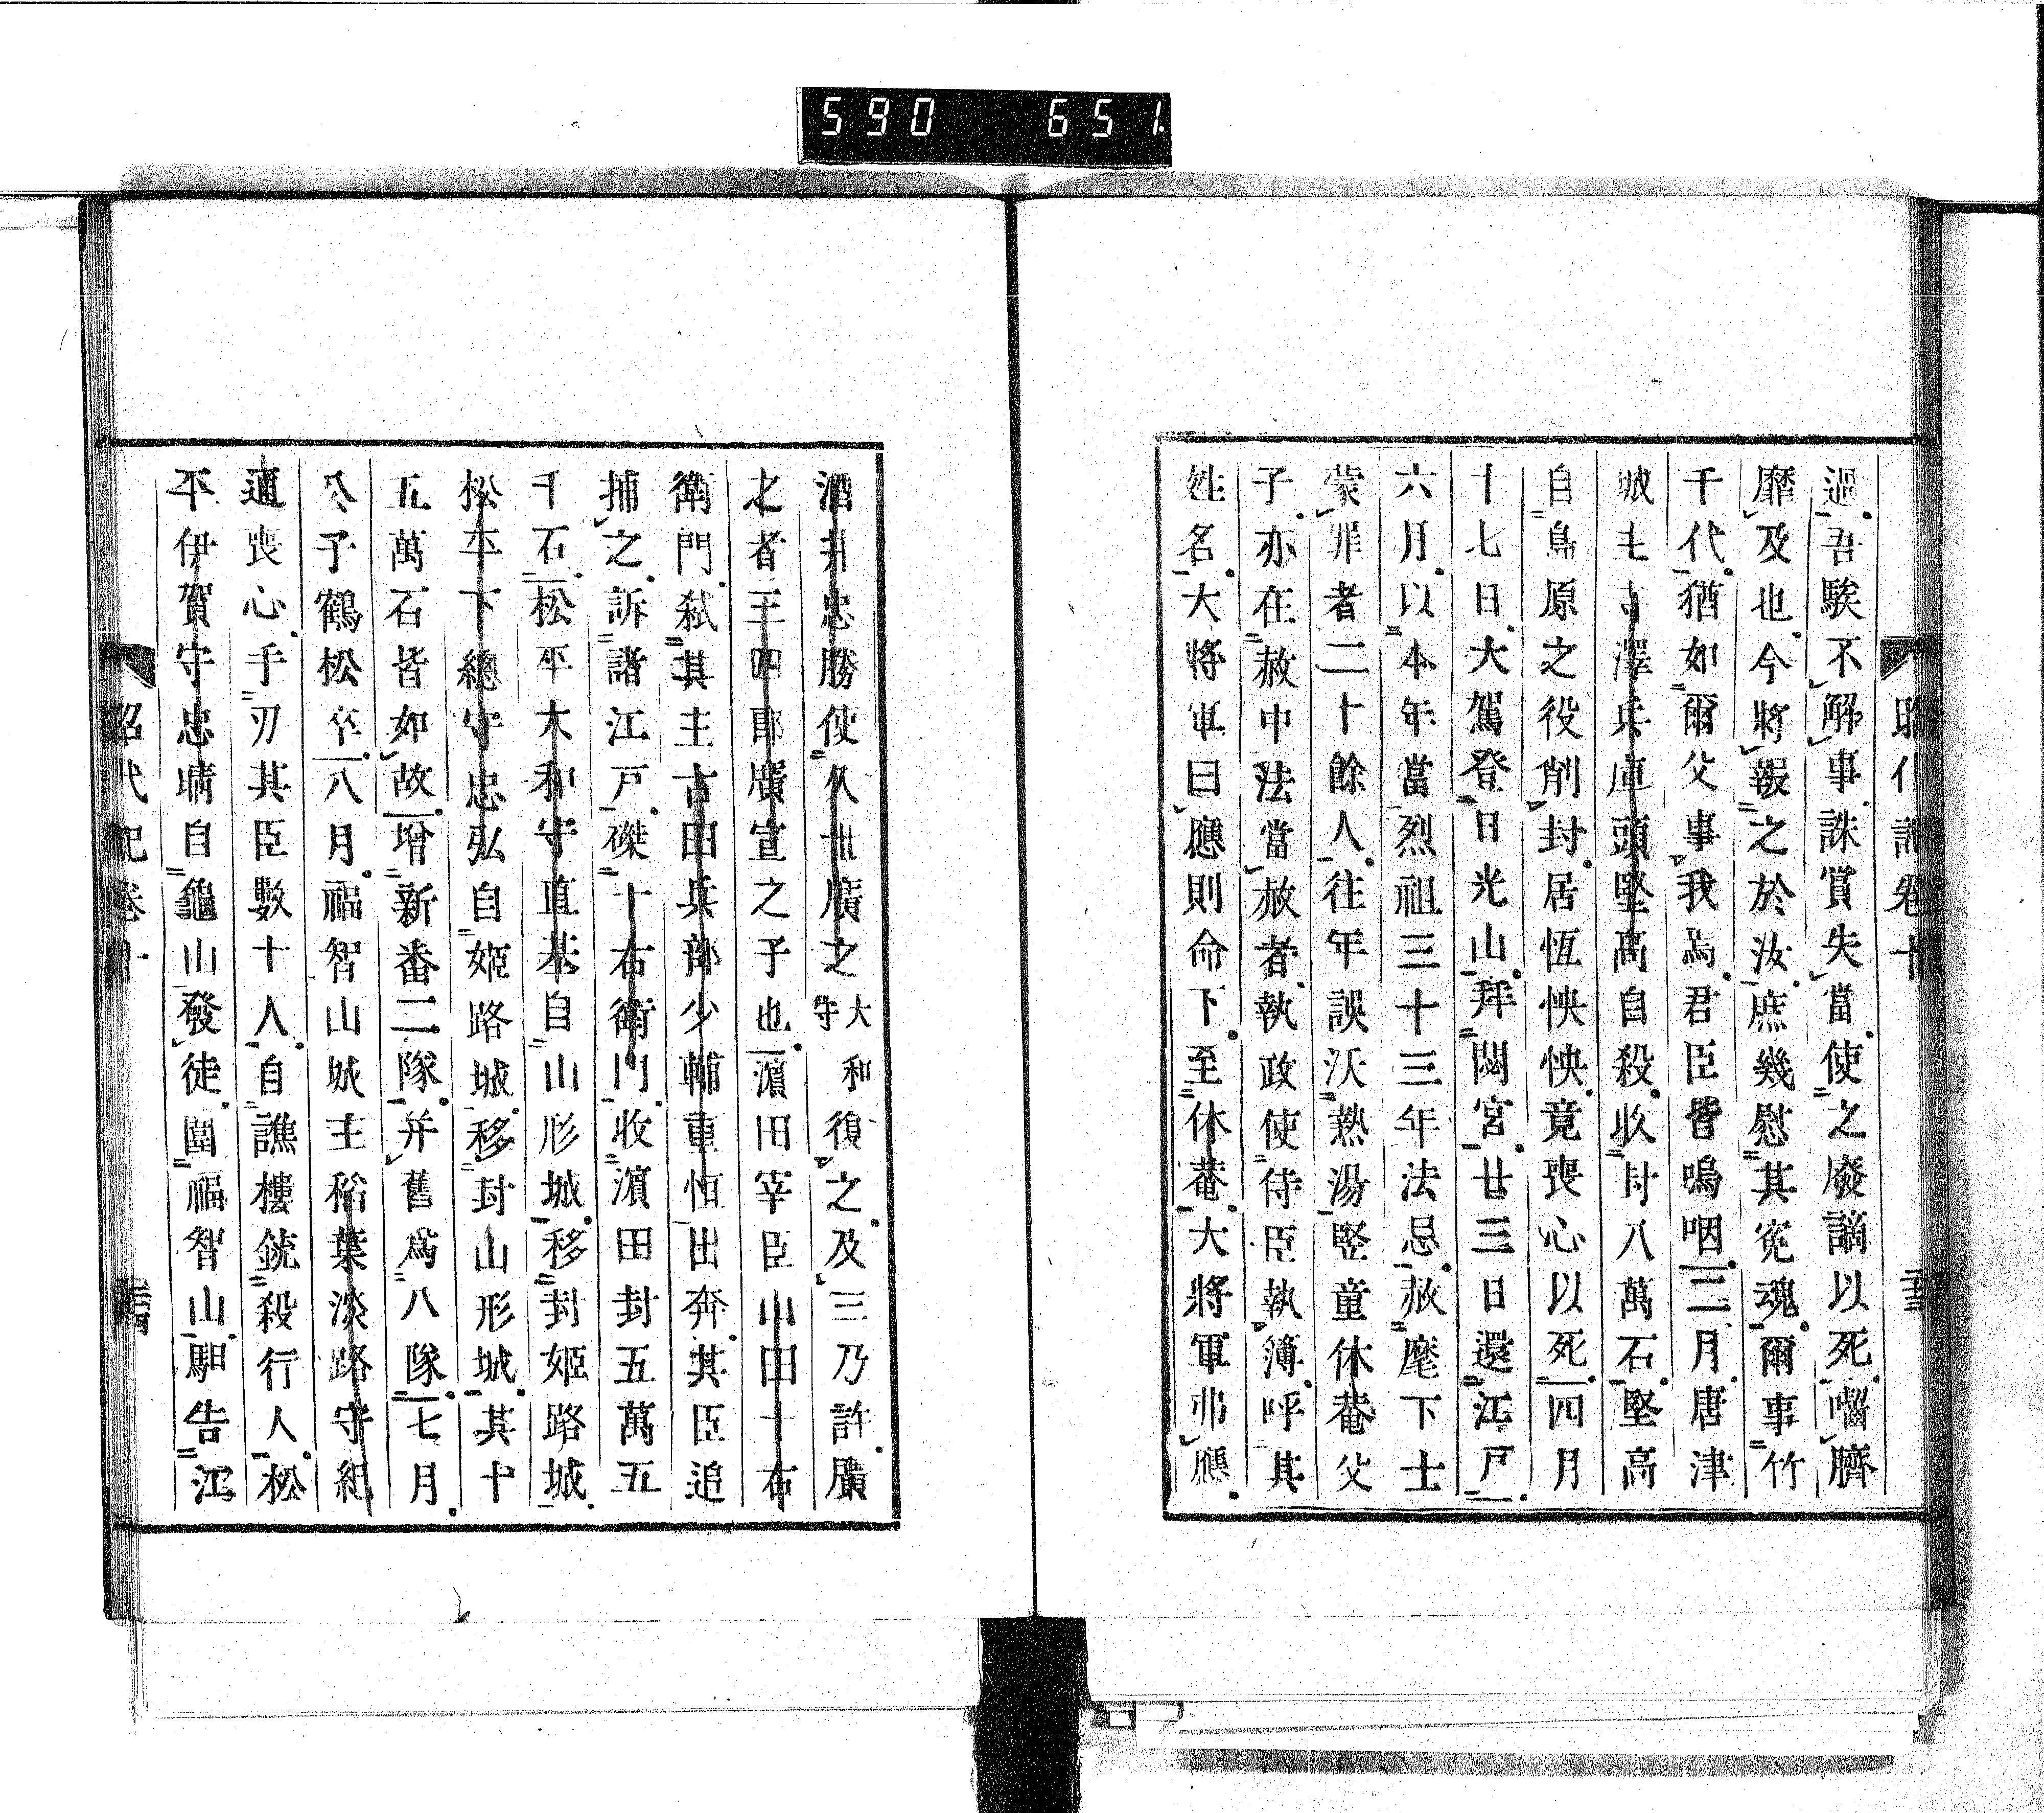 590 651
昭代記卷十
過吾騃不解事誅賞失當使之廢謫以死噬臍
靡及也今將報之於汝庶幾慰其冤魂爾事竹
千代猶如爾父事我焉君臣皆嗚咽二月唐津
城主寺澤兵庫頭堅高自殺收封八萬石堅高
自島原之役削封居恆怏怏竟喪心以死四月
十七日大駕登日光山拜閟宮廿三日還江戸
六月以本年當烈祖三十三年法忌赦麾下士
蒙罪者二十餘人往年誤沃熱湯竪童休菴父
子亦在赦中法當赦者執政使侍臣執簿呼其
姓名大將軍曰應則命下至休菴大將軍弗應
酒井忠勝使久世廣之大和守復之及三乃許廣
之者三四郎廣宣之子也濵田宰臣山田十右
衛門弑其主古田兵部少輔重恒出奔其臣追
捕之訴諸江戸磔十右衛門收濵田封五萬五
千石松平大和守直基自山形城移封姬路城
松平下總守忠弘自姬路城移封山形城其十
五萬石皆如故增新番二隊并舊爲八隊七月
公子鶴松卒八月福智山城主稻葉淡路守紀
通喪心手刃其臣數十人自譙樓銃殺行人松
平伊賀守忠晴自龜山發徒圍福智山馹告江
昭代記卷十